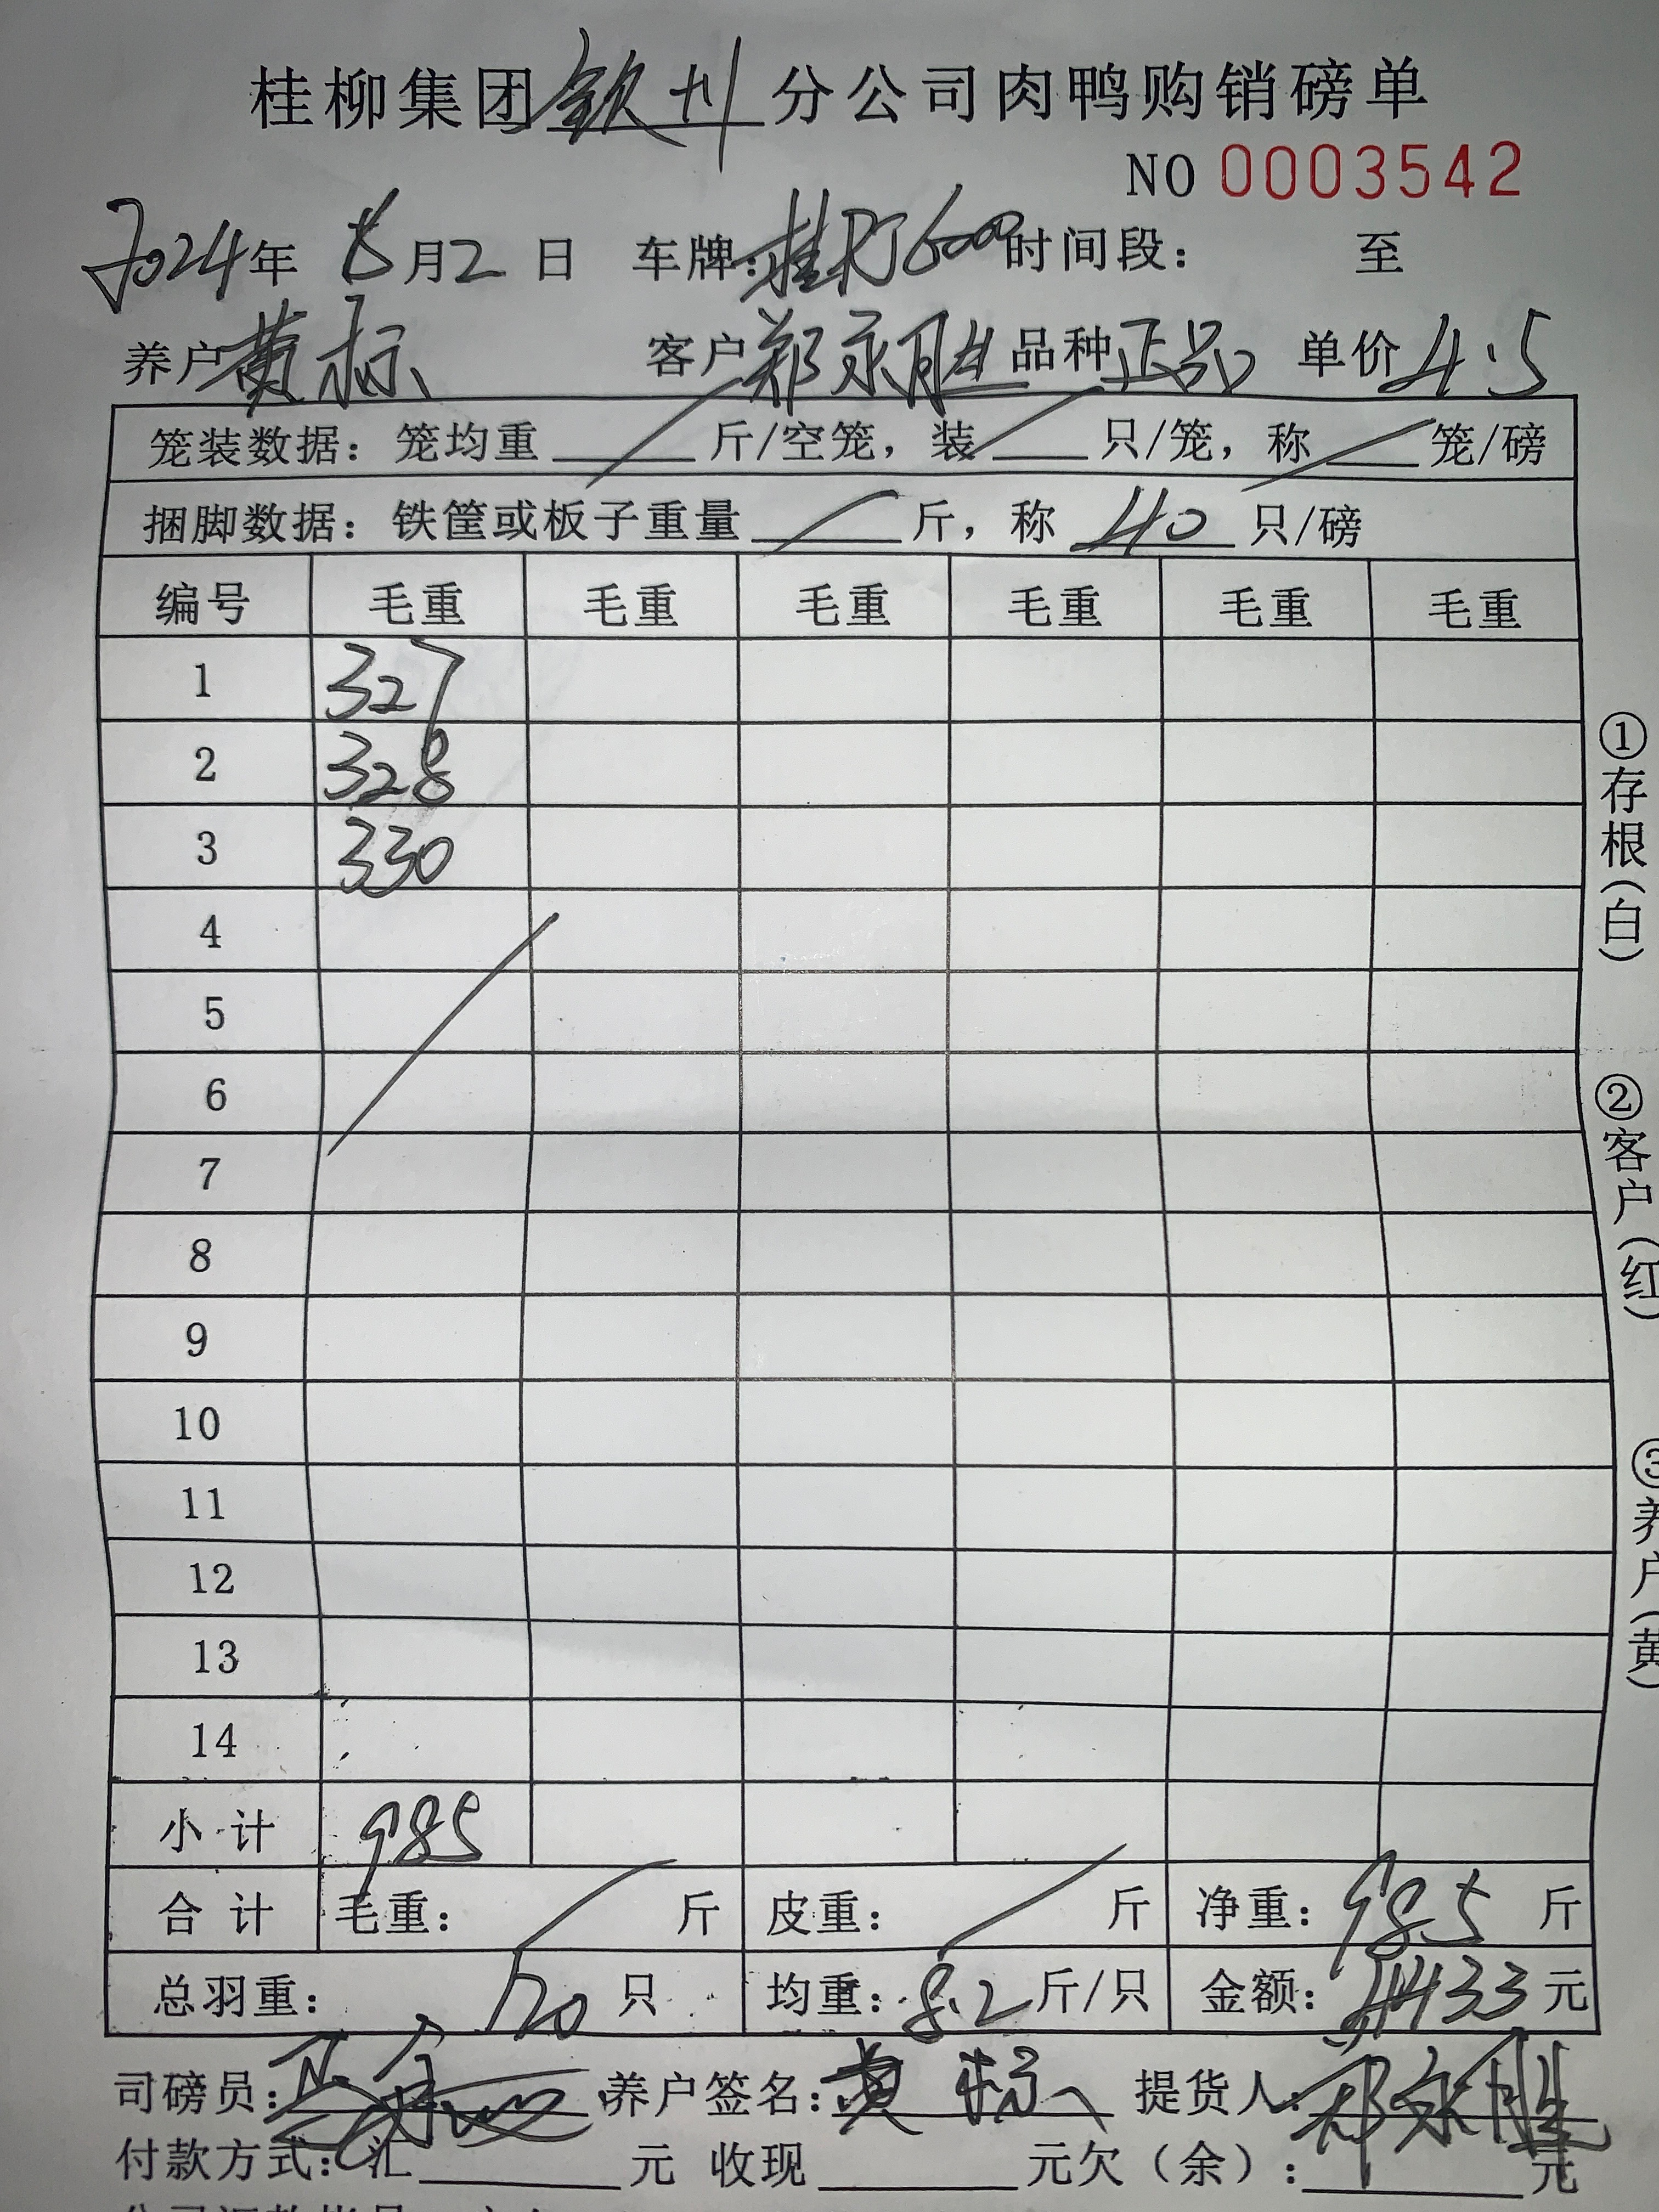 桂柳集团钦州分公司肉鸭购销磅单
NO 0003542
2024年 8月2日 车牌: 时间段: 至
养户黄标 客户郑永胜 品种正品 单价4.5
笼装数据: 笼均重 斤/空笼, 装 只/笼, 称 笼/磅
捆脚数据: 铁筐或板子重量 斤, 称 40 只/磅
编号 毛重 毛重 毛重 毛重 毛重 毛重
1 327
2 328
3 330
4
5
6
7
8
9
10
11
12
13
14
小计 985
合计 毛重: 斤 皮重: 斤 净重: 985 斤
总羽重: 120 只 均重: 8.2 斤/只 金额: 4433 元
司磅员: 养户签名: 黄标 提货人: 郑永胜
付款方式: 汇 元 收现 元欠(余): 元
①存根(白)
②客户(红)
③养户(黄)